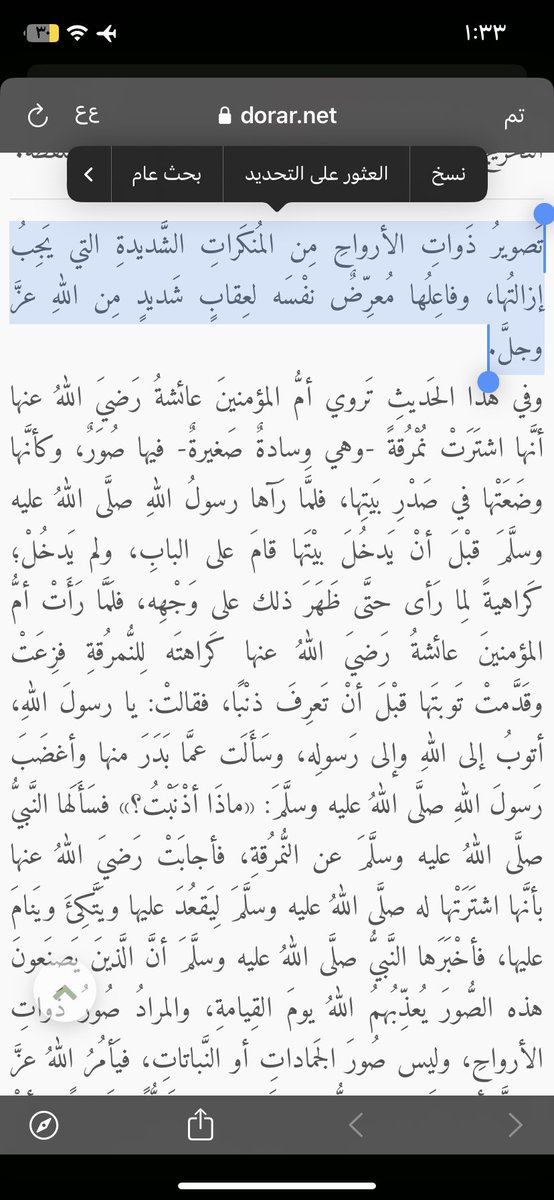 ١:٣٣
٣٠
تم
dorar.net
عع
نسخ
العثور على التحديد
بحث عام
تَصويرُ ذَواتِ الأرواحِ مِن المُنكَراتِ الشَّديدةِ التي يَجِبُ
إزالتُها، وفاعِلُها مُعرِّضٌ نفْسَه لعِقابٍ شَديدٍ مِن اللهِ عزَّ
وجلَّ.
وفي هذا الحَديثِ تَروي أمُّ المؤمنينَ عائشةُ رَضيَ اللهُ عنها
أنَّها اشتَرَتْ نُمْرُقةً -وهي وِسادةٌ صَغيرةٌ- فيها صُوَرٌ، وكأنَّها
وضَعَتْها في صَدْرِ بَيتِها، فلمَّا رَآها رسولُ اللهِ صلَّى اللهُ عليه
وسلَّمَ قبْلَ أنْ يَدخُلَ بيْتَها قامَ على البابِ، ولم يَدخُلْ؛
كَراهيةً لِما رَأى حتَّى ظَهَرَ ذلك على وَجْهِه، فلَمَّا رَأَتْ أمُّ
المؤمنينَ عائشةُ رَضيَ اللهُ عنها كَراهتَه لِلنُّمرُقةِ فزِعَتْ
وقدَّمتْ تَوبتَها قبْلَ أنْ تَعرِفَ ذنْبًا، فقالتْ: يا رسولَ اللهِ،
أتوبُ إلى اللهِ وإلى رَسولِه، وسَأَلَت عمَّا بَدَرَ منها وأغضَبَ
رَسولَ اللهِ صلَّى اللهُ عليه وسلَّمَ: «ماذَا أذْنَبْتُ؟» فسَأَلَها النَّبيُّ
صلَّى اللهُ عليه وسلَّمَ عن النُّمرُقةِ، فأجابَتْ رَضيَ اللهُ عنها
بأنَّها اشتَرَتْها له صلَّى اللهُ عليه وسلَّمَ لِيَقعُدَ عليها ويَتَّكِئَ ويَنامَ
عليها، فأخْبَرَها النَّبيُّ صلَّى اللهُ عليه وسلَّمَ أنَّ الَّذينَ يَصنَعونَ
هذه الصُّورَ يُعذِّبُهمُ اللهُ يومَ القِيامةِ، والمرادُ صُورُ ذَواتِ
الأرواحِ، وليس صُورَ الجَماداتِ أو النَّباتاتِ، فيَأمُرُ اللهُ عزَّ